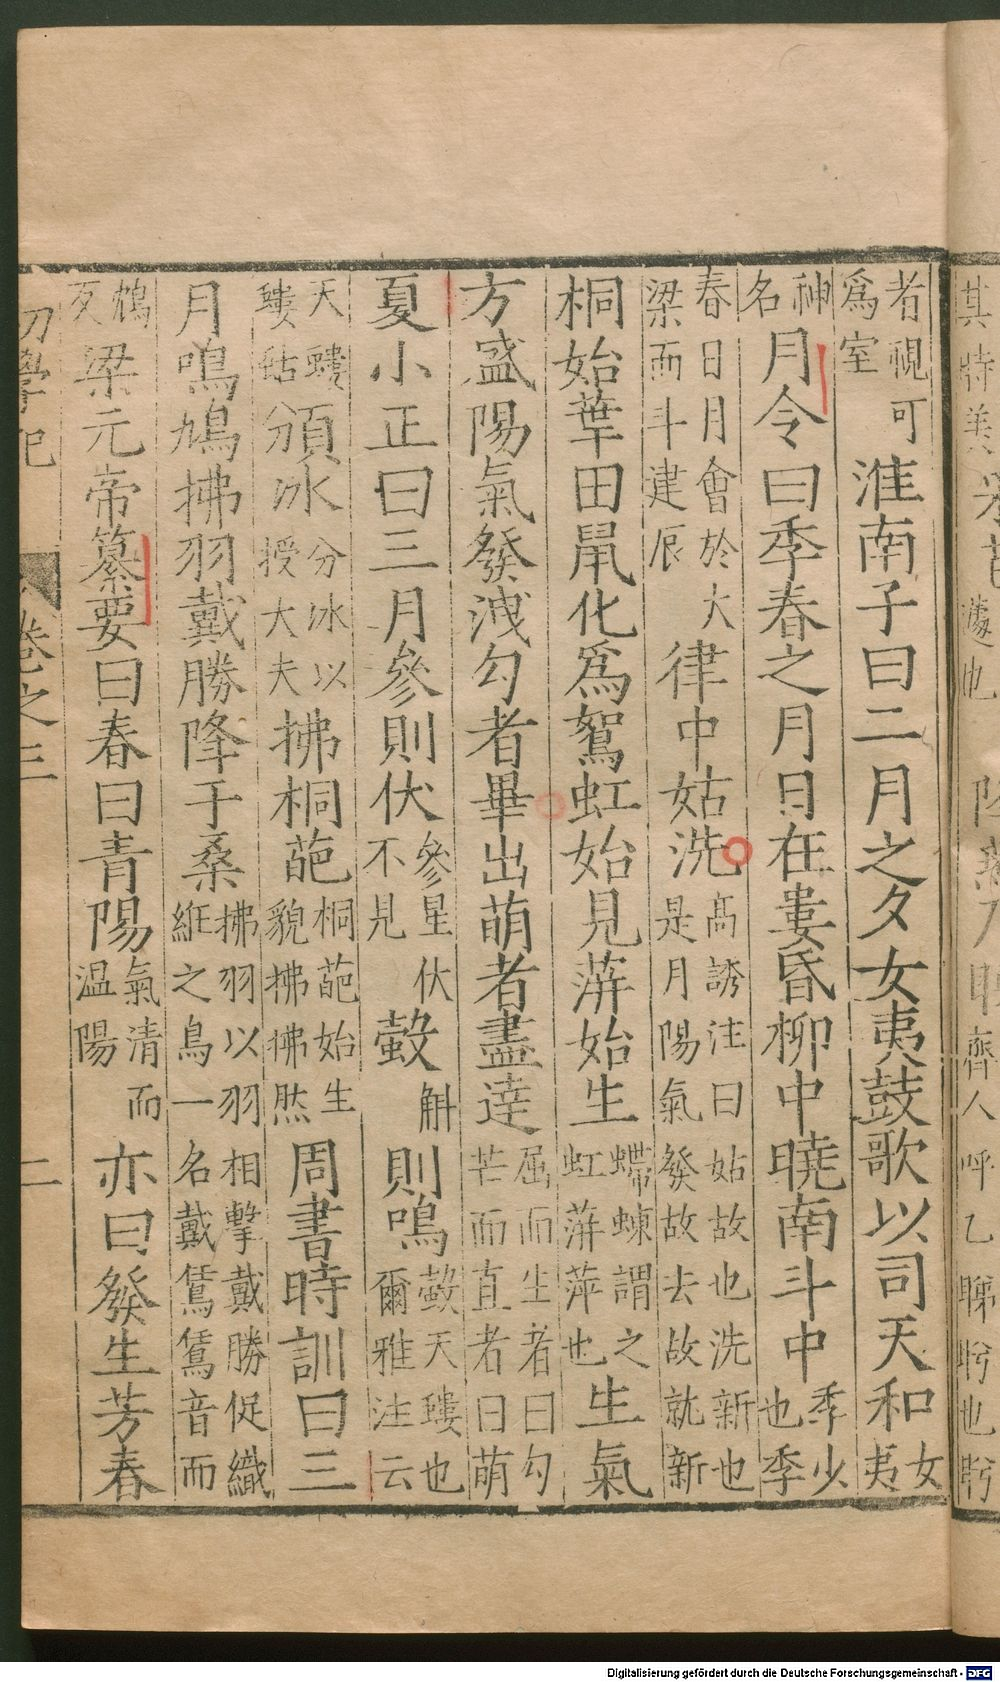 者視可爲室淮南子曰二月之夕女夷鼓歌以司天和女夷
神名月令曰季春之月日在婁昏柳中曉南斗中季少也季
春日月會於大梁而斗建辰律中姑洗高誘注曰姑故也洗新也是月陽氣發故去故就新
桐始華田鼠化爲鴽虹始見蓱始生螮蝀謂之虹蓱萍也生氣
方盛陽氣發洩勾者畢出萌者盡達屈而生者曰勾芒而直者曰萌
夏小正曰三月參則伏參星伏不見螜斛則鳴螜天螻也爾雅注云
天螻螻蛄頒冰分冰以授大夫拂桐葩桐葩始生貌拂拂然周書時訓曰三
月鳴鳩拂羽戴勝降于桑拂羽以羽相擊戴勝促織維之鳥一名戴鵀鵀音而
鴆反梁元帝纂要曰春曰青陽氣清而温陽亦曰發生芳春
初學記 卷之三 二
Digitalisierung gefördert durch die Deutsche Forschungsgemeinschaft - DFG